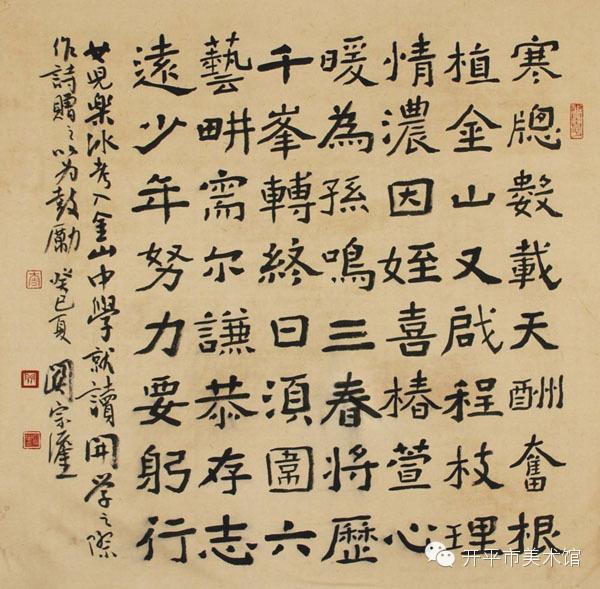 寒牕數載天酬奮根
植金山又啟程枝理
情濃因姪喜椿萱心
暖為孫鳴三春將歷
千峯轉終日須圍六
藝畊需尔謙恭存志
遠少年努力要躬行
女兒樂冰考入金山中學就讀開學之際
作詩贈之以為鼓勵 癸巳夏 關宗
开平市美术馆